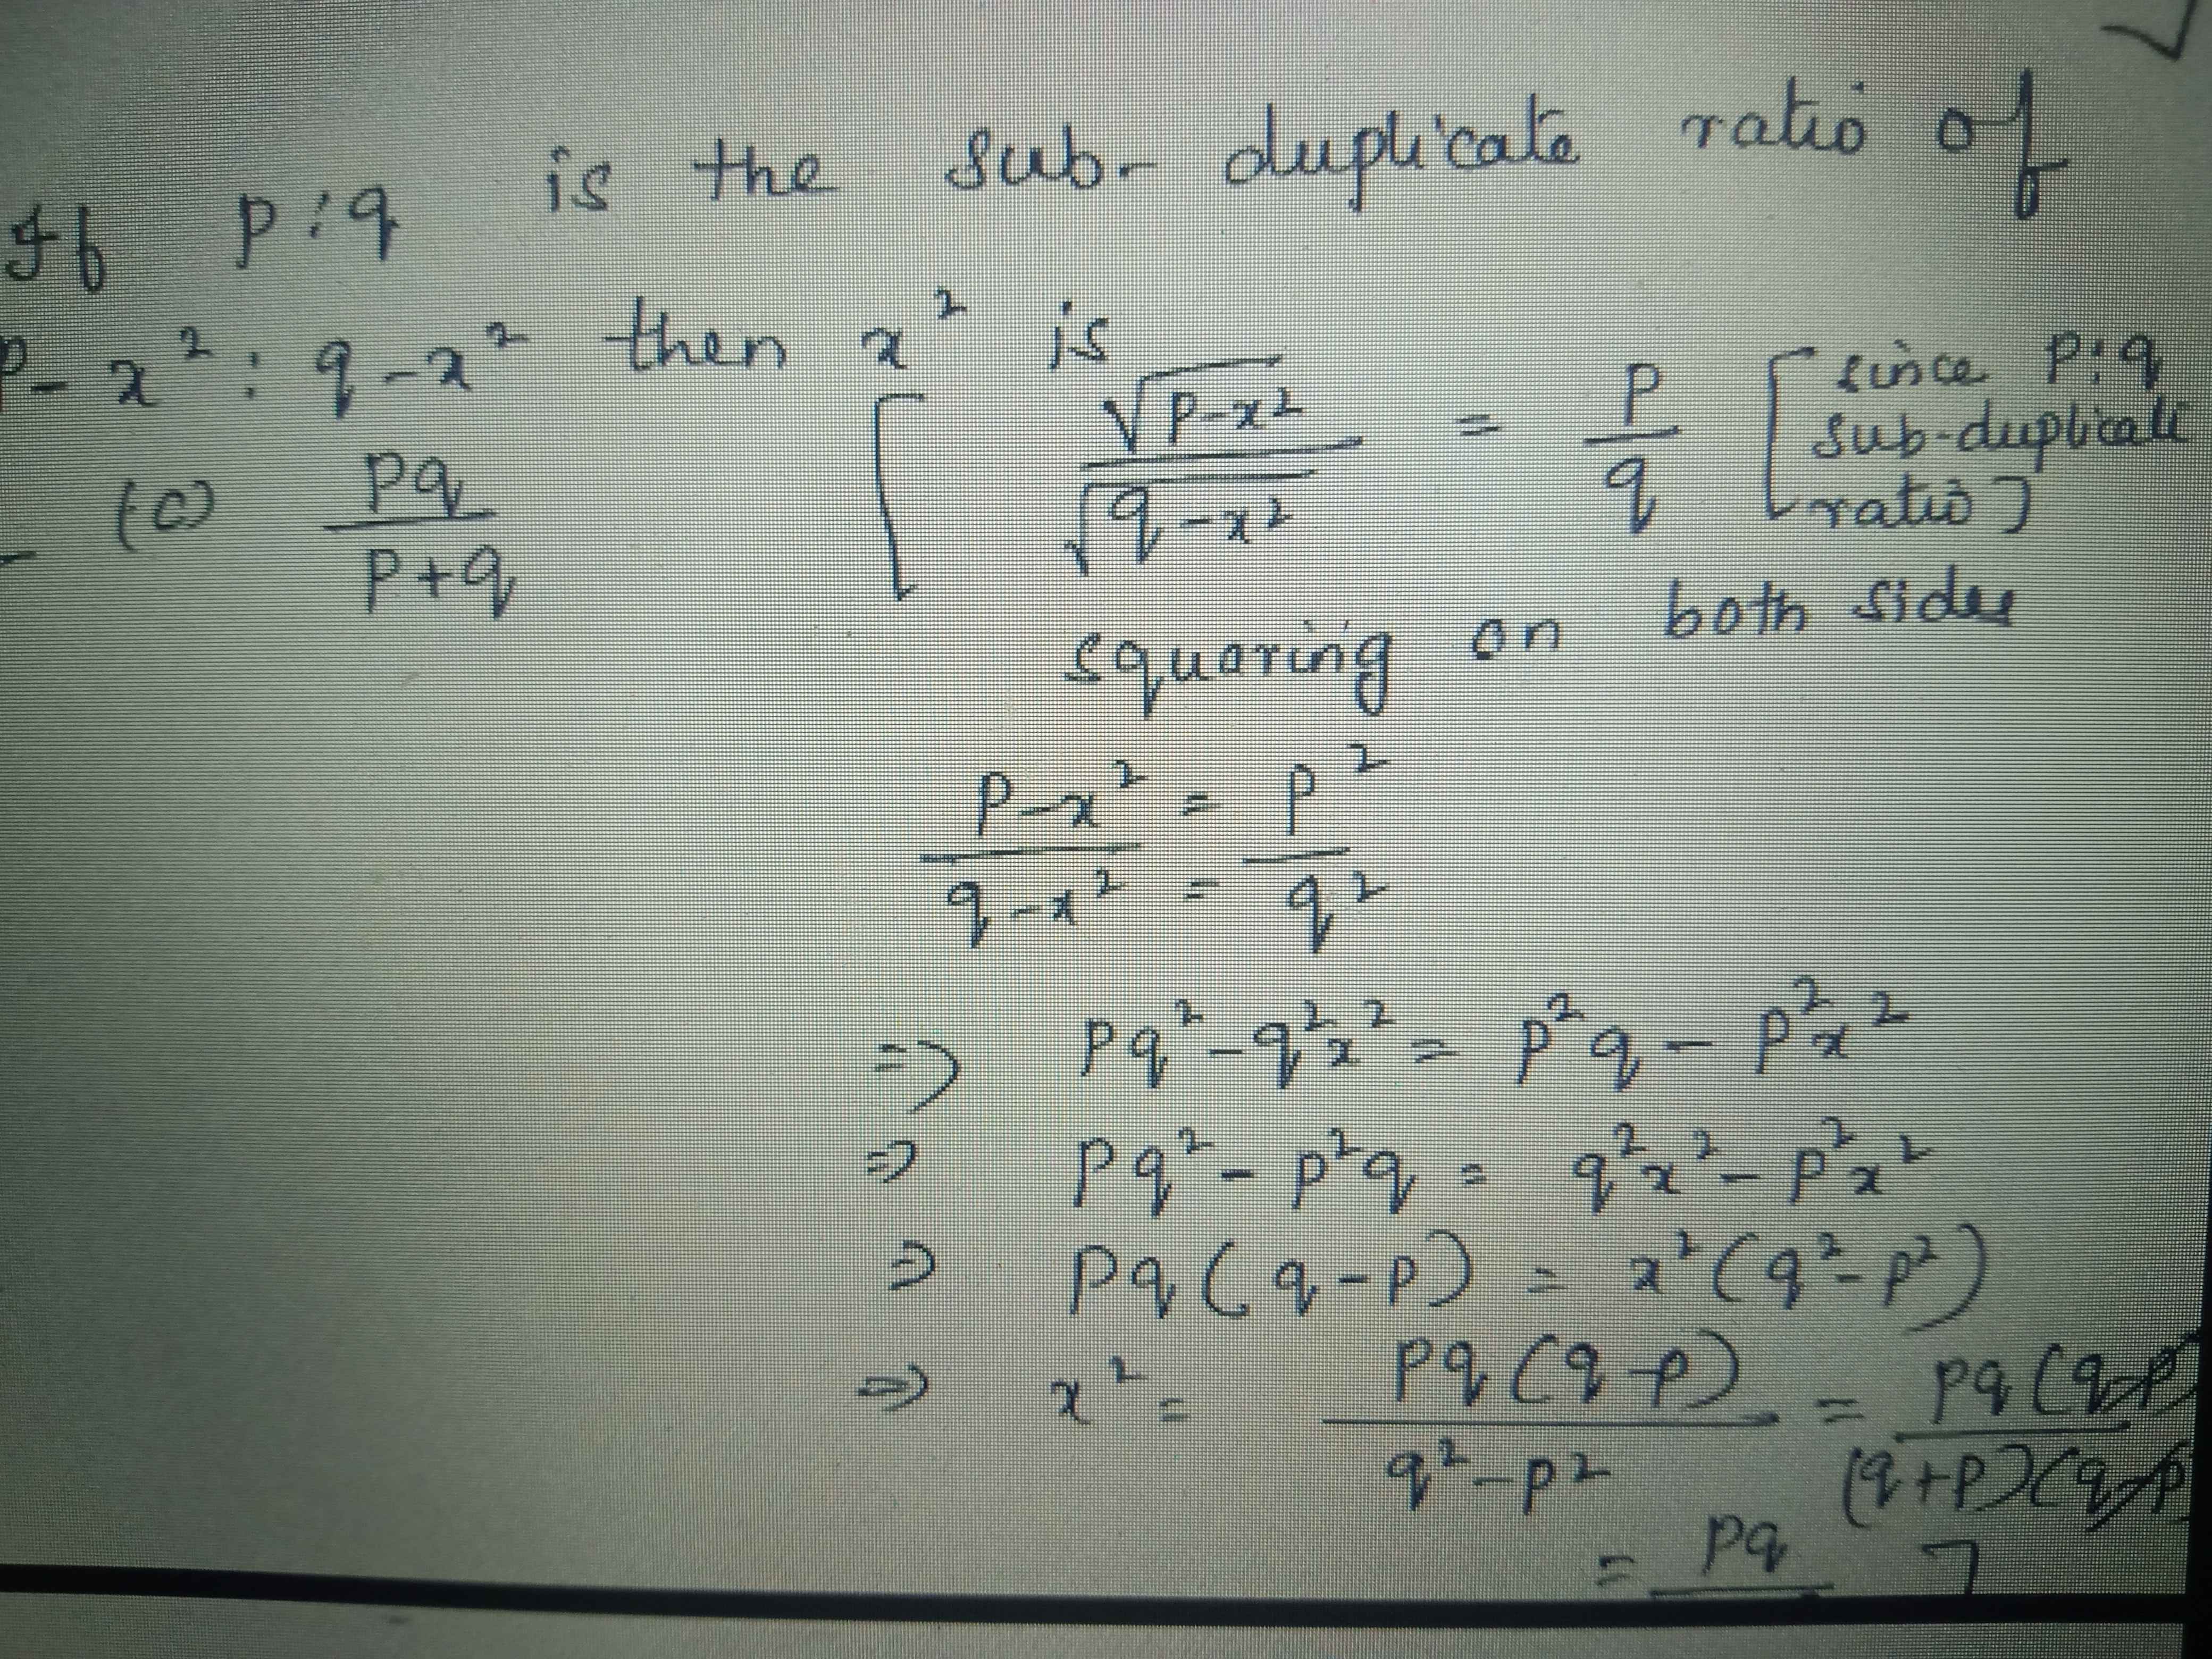 If p:q is the sub-duplicate ratio of
P-x²: q-x² then x² is
(c) pq/p+q [ √p-x²/√q-x² = p/q [since p:q
sub-duplicate
ratio]
squaring on both sides
p-x²/q-x² = p²/q²
=> pq²-q²x² = p²q - p²x²
=> pq² - p²q = q²x² - p²x²
=> pq(q-p) = x²(q²-p²)
=> x² = pq(q-p)/q²-p² = pq(q-p)/(q+p)(q-p)
= pq ]